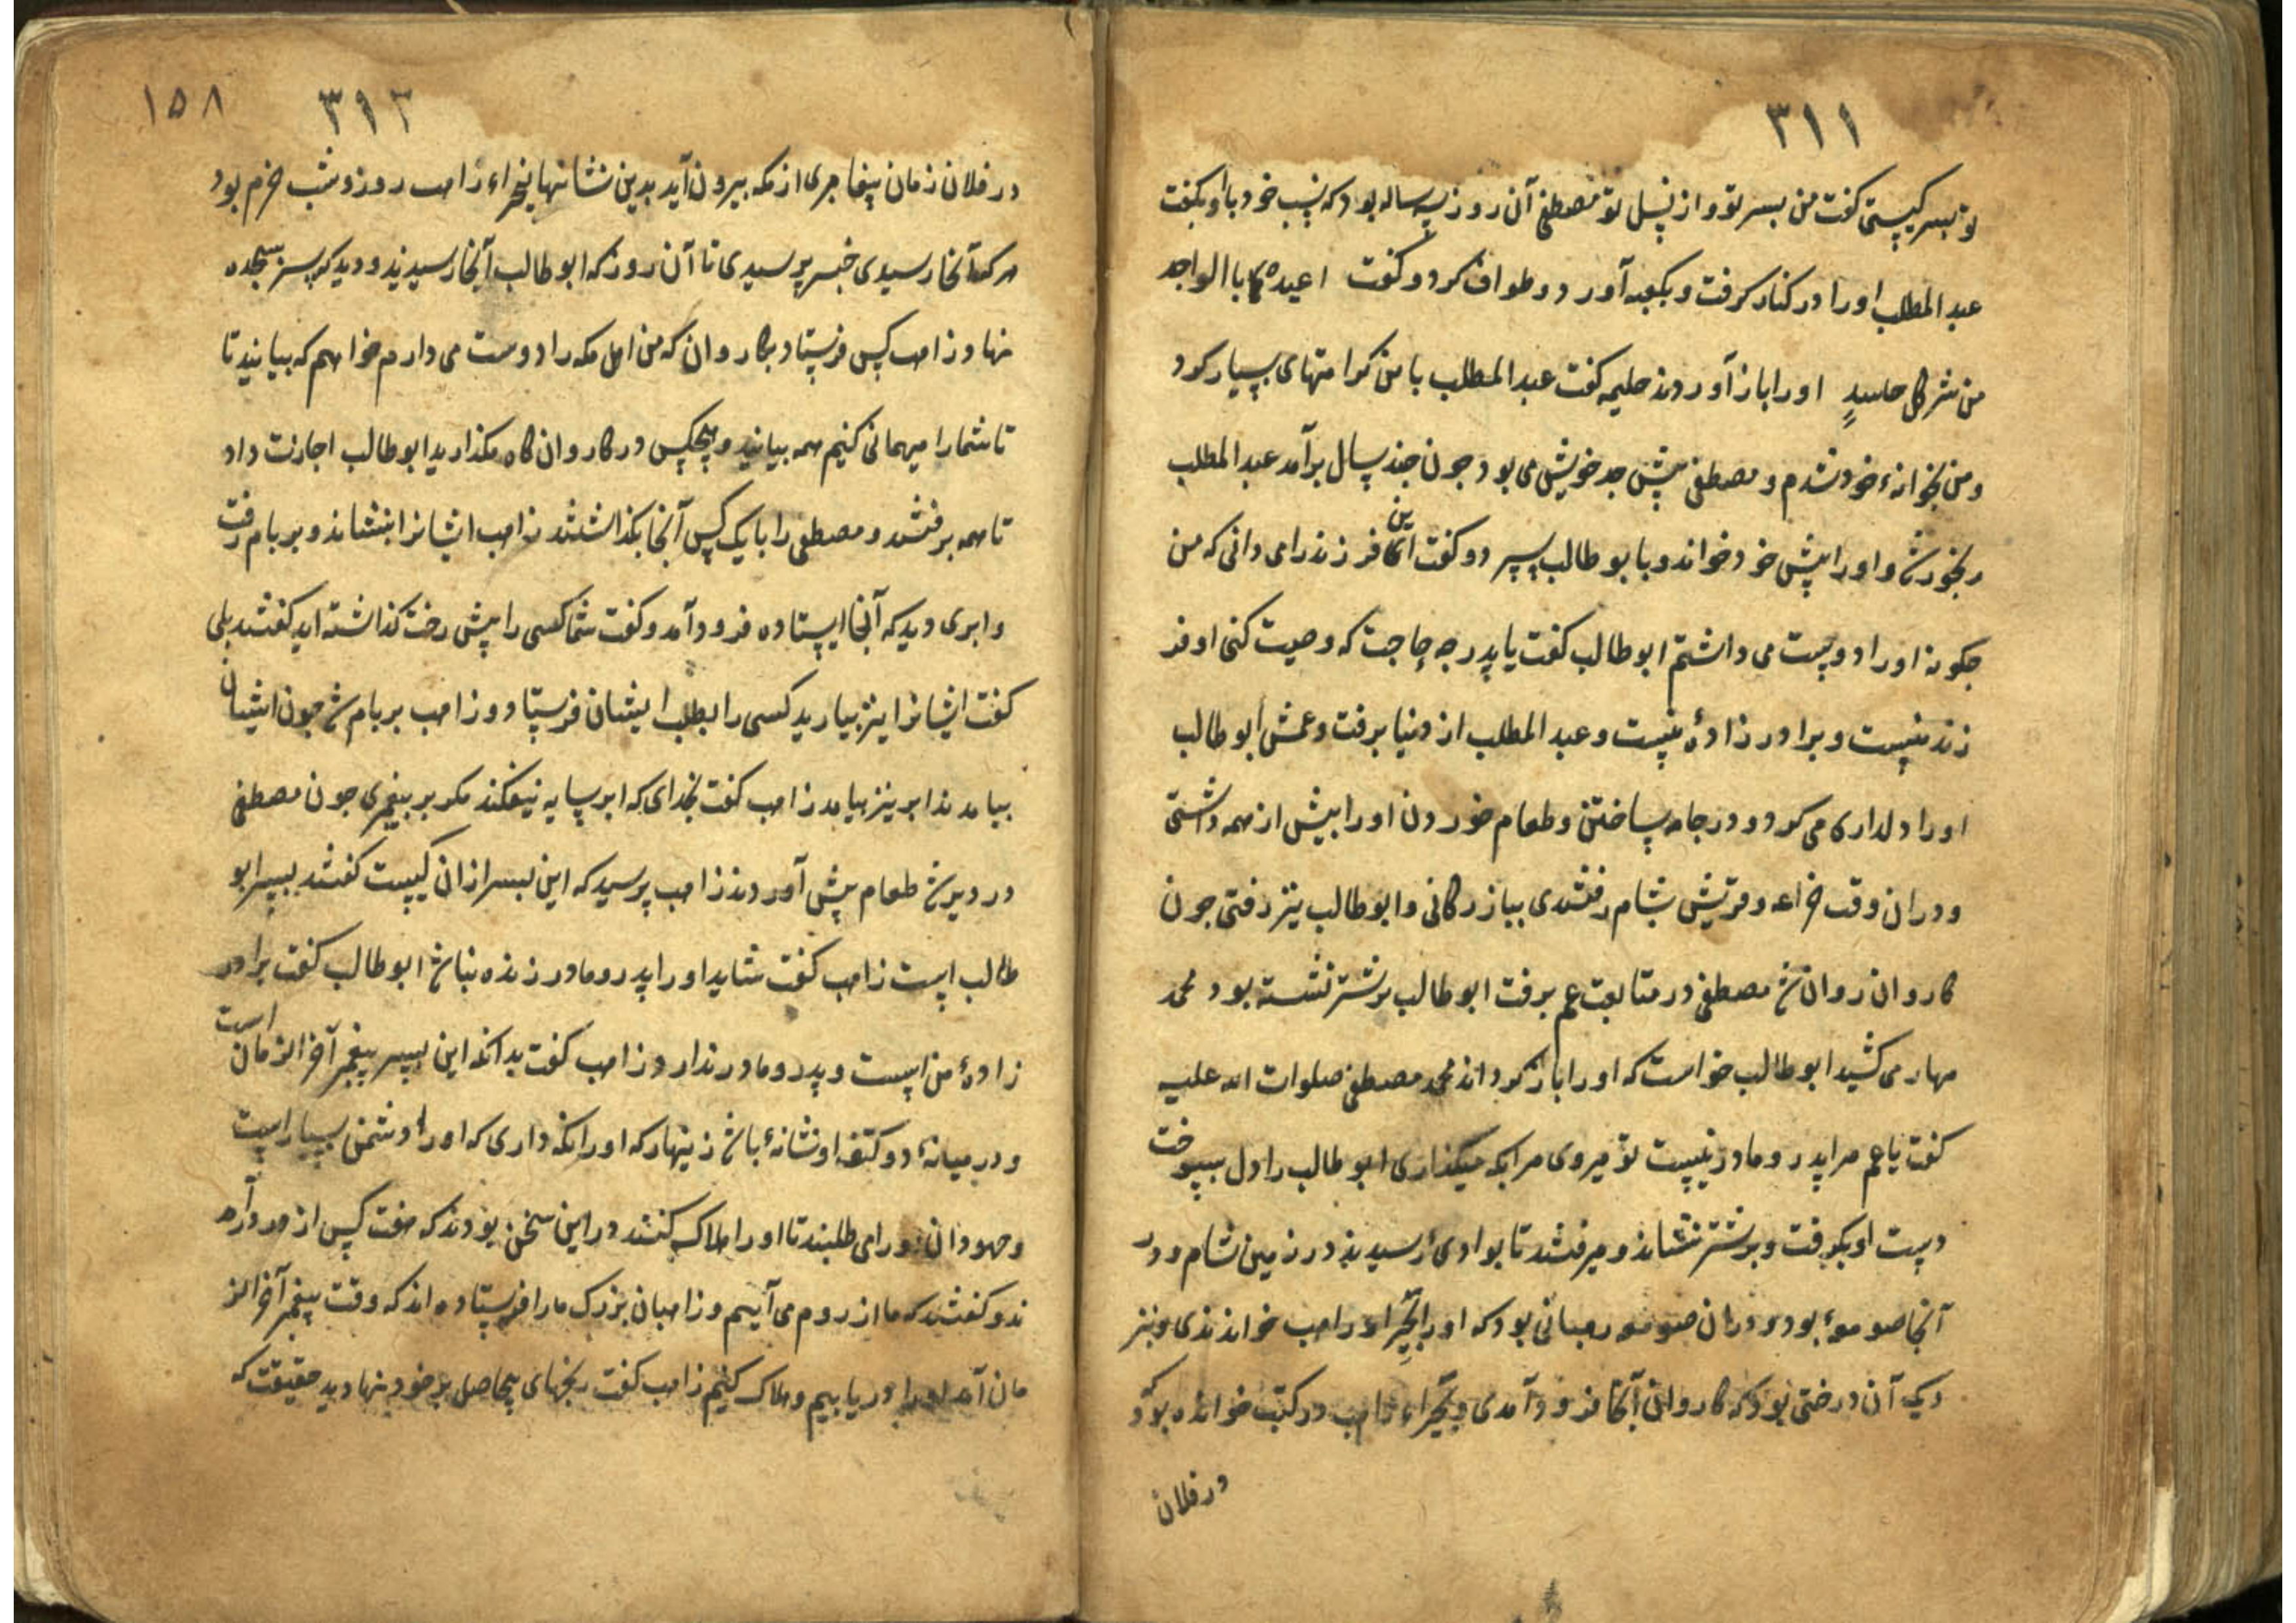 ۳۱۱
تو پسر کیستی کفت من پسر تو و از نسل تو مصطفی آن روز سه ساله بود که نسب خود با او بکفت
عبد المطلب او را در کنار کرفت و بکعبه آورد و طواف کرد و کفت اعیذه بالواحد
من شر کل حاسدٍ او را باز آوردند حلیمه کفت عبد المطلب با من کرامتهای بسیار کرد
و من بخوانهٔ خود شدم و مصطفی پیش جد خویش می بود جون جند سال برآمد عبد المطلب
رنجور شد و او را پیش خود خواند و با بو طالب سپرد و کفت این فرزند را می دانی که من
جکونه او را دوست می داشتم ابو طالب کفت یا پدر جه حاجت که وصیت کنی او فر
زند منست و برادر زادهٔ منست و عبد المطلب از دنیا برفت و عمش ابو طالب
او را دلداری می کرد و در جامه ساختن و طعام خوردن او را بیش از همه داشتی
و در ان وقت خزاعه و قریش بشام رفتندی ببازرکانی و ابو طالب نیز رفتی جون
کاروان روان شد مصطفی در متابعت عم برفت ابو طالب بر شتر نشسته بود محمد
مهار می کشید ابو طالب خواست که او را باز کرداند محمد مصطفی صلوات الله علیه
کفت یا عم مرا پدر و مادر نیست تو میروی مرا بکه میکذاری ابو طالب را دل بسوخت
دست او بکرفت و بر شتر نشاند و میرفتند تا بوادیٔ رسیدند در زمین شام و در
آنجا صومعهٔ بود و در ان صومعه رهبانی بود که او را بحیراء راهب خواندندی و نیز
دیک آن درختی بود که کاروان آنجا فرود آمدی و بحیراء راهب در کتب خوانده بود که
در فلان
۱۵۸
۳۱۲
در فلان زمان پیغامبری از مکه بیرون آید بدین نشانها بحیراء زاهب روز و شب خرم بود
هرکه آنجا رسیدی خبر پرسیدی تا آن روز که ابو طالب آنجا رسیدند و دید که سر بسجده
نهاد زاهب کس فرستاد بکاروان که من اهل مکه را دوست می دارم خواهم که بیایند تا
تا شما را میهمانی کنیم همه بیایید و هیجکس در کاروان کاه مکذارید ابو طالب اجازت داد
تا همه برفتند و مصطفی را با یک کس آنجا بکذاشتند زاهب ایشانرا بنشاند و بر بام رفت
و ابری دید که آنجا ایستاده فرود آمد و کفت شما کسی را پیش رخت کذاشته اید کفتند بلی
کفت ایشانرا نیز بیارید کسی را بطلب ایشان فرستاد و زاهب بر بام شد جون ایشان
بیامدند ابر نیز بیامد زاهب کفت بخدای که ابر سایه نیفکند مکر بر پیغمبری جون مصطفی
در دیر شد طعام پیش آوردند زاهب پرسید که این پسر از ان کیست کفتند پسر ابو
طالب است زاهب کفت شاید او را پدر و مادر زنده نباشد ابو طالب کفت برادر
زادهٔ من است و پدر و مادر ندارد زاهب کفت بدانکه این پسر پیغمبر آخر الزمان است
و در میانهٔ دو کتف او نشانهٔ باشد زینهار که او را نکه داری که او را دشمن بسیار است
و جهودان او را می طلبند تا او را هلاک کنند در این سخن بودند که هفت کس از در درآمد
ند و کفتند که ما از روم می آییم و زاهبان بزرک ما را فرستاده اند که وقت پیغمبر آخر الز
مان آمد او را دریابیم و هلاک کنیم زاهب کفت رنجهای بیحاصل بر خود منهادید حقیقت که